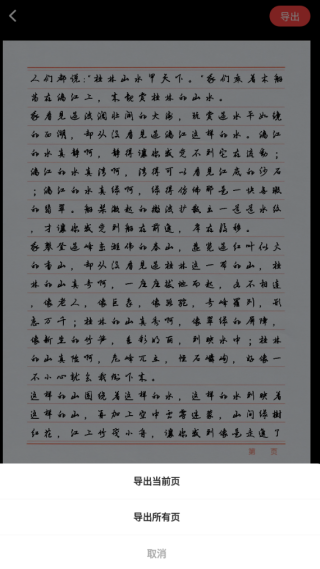 导出
人们都说："桂林山水甲天下。"我们乘着木船
荡在漓江上，来观赏桂林的山水。
我看见过波澜壮阔的大海，玩赏过水平如镜
的西湖，却从没看见过漓江这样的水。漓江
的水真静啊，静得让你感觉不到它在流动；
漓江的水真清啊，清得可以看见江底的沙石
；漓江的水真绿啊，绿得仿佛那是一块无瑕
的翡翠。船桨激起的微波扩散出一道道水纹，
才让你感觉到船在前进，岸在后移。
我攀登过峰峦雄伟的泰山，游览过红叶似火
的香山，却从没看见过桂林这一带的山，桂
林的山真奇啊，一座座拔地而起，各不相连
，像老人，像巨象，像骆驼，奇峰罗列，形
态万千；桂林的山真秀啊，像翠绿的屏障，
像新生的竹笋，色彩明丽，倒映水中；桂林
的山真险啊，危峰兀立，怪石嶙峋，好像一
不小心就会栽倒下来。
这样的山围绕着这样的水，这样的水倒映着
这样的山，再加上空中云雾迷蒙，山间绿树
红花，江上竹筏小舟，让你感到像是走进了
第 页
导出当前页
导出所有页
取消